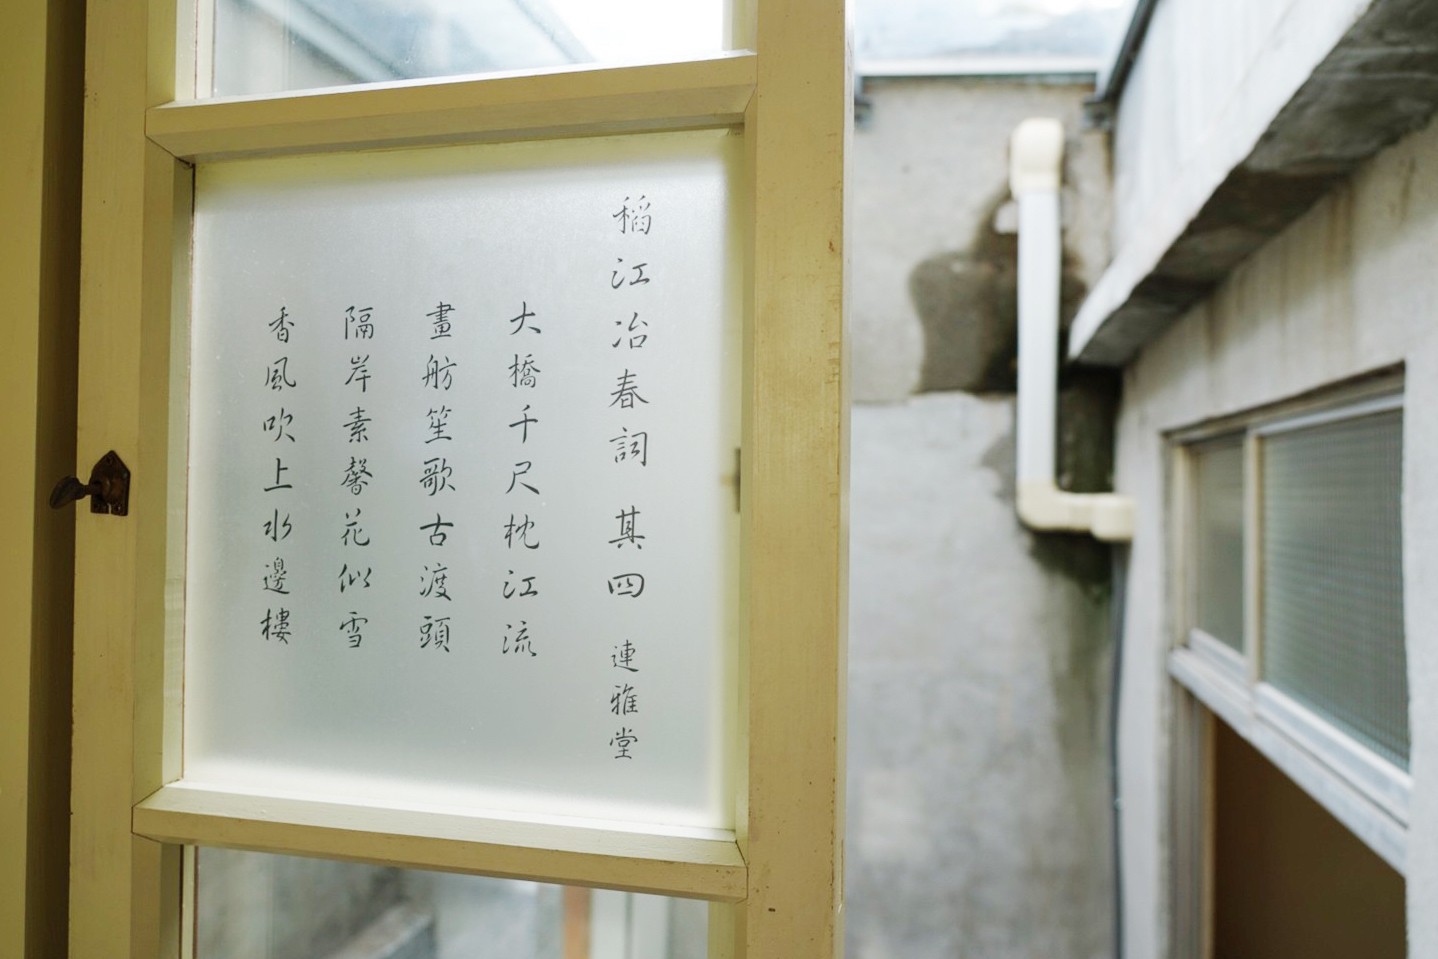 稻江冶春詞 其四 連雅堂
大橋千尺枕江流
畫舫笙歌古渡頭
隔岸素馨花似雪
香風吹上水邊樓